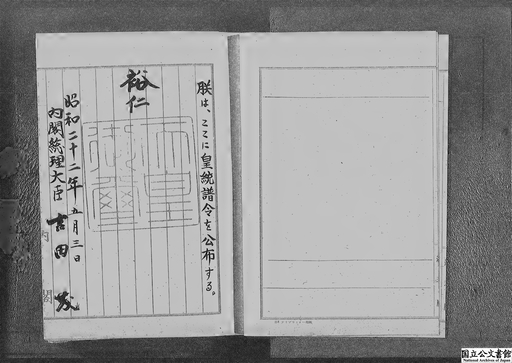 朕は、ここに皇統譜令を公布する。
裕仁
昭和二十二年五月三日
内閣総理大臣 吉田茂
国立公文書館
National Archives of Japan